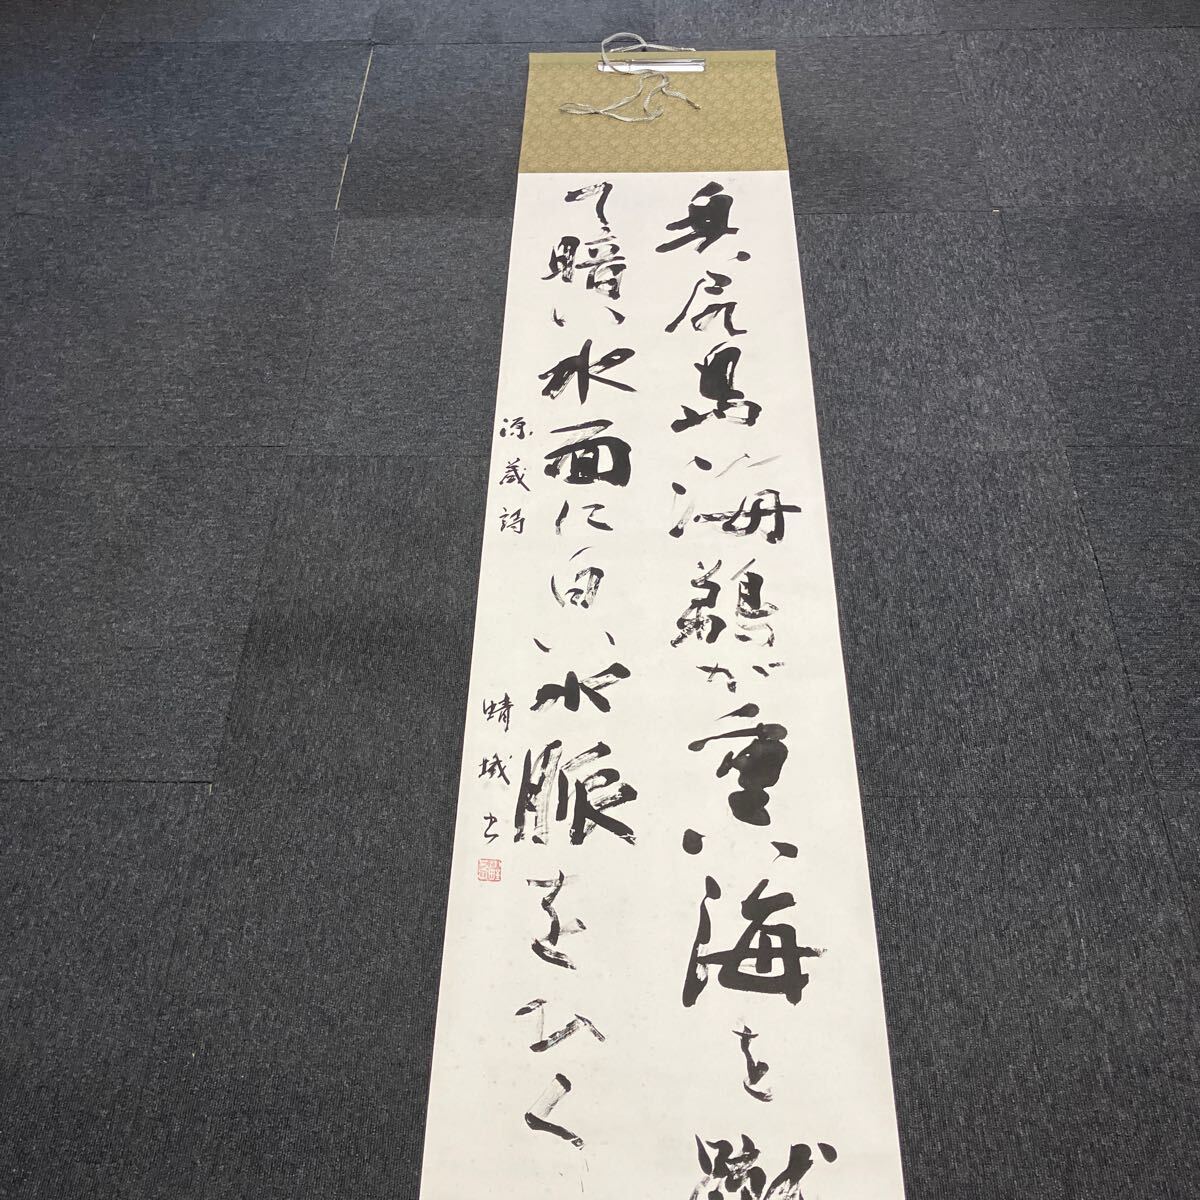 奥尻島海鵜が重い海を蹴
て暗い水面に白い水脈をひく
源蔵詩
蜻城書